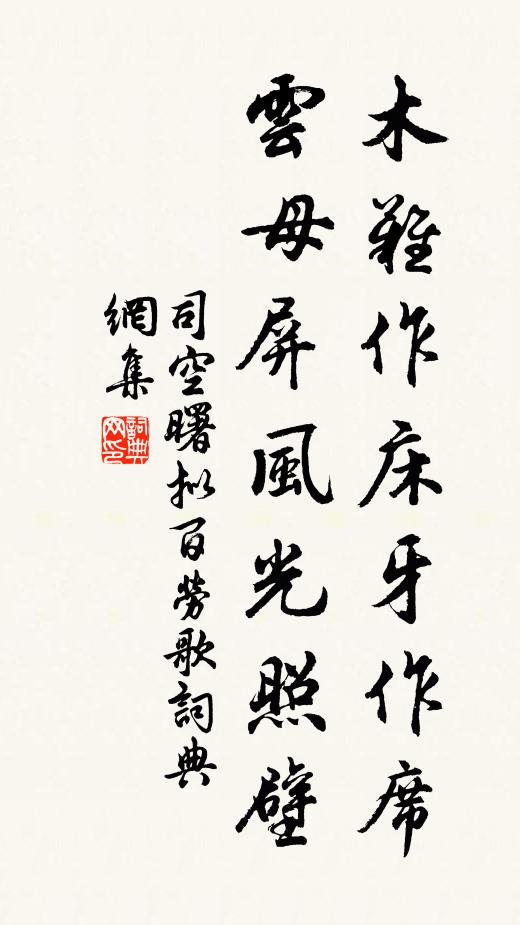 木難作床牙作席
雲母屏風光照壁
司空曙拟百勞歌詞典
網集
詞典
网印